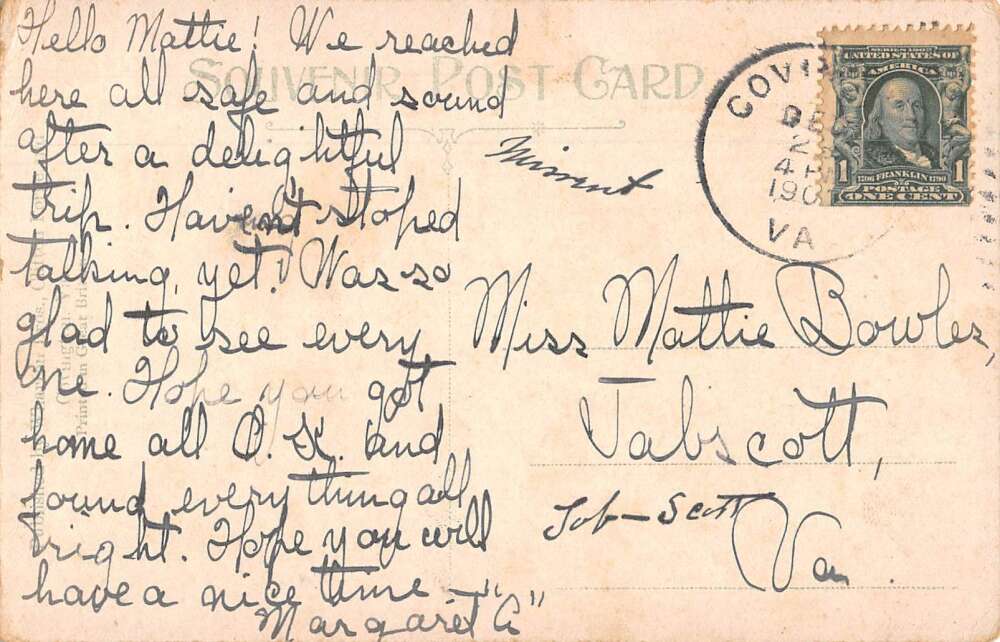 Hello Mattie! We reached
here all safe and sound
after a delightful
trip. Haven't stoped
talking, yet! Was so
glad to see every
one. Hope you got
home all O.K. and
found everything all
right. Hope you will
have a nice time –
Margaret "G"
SOUVENIR POST CARD
Missent
COVI
DE
2
4 P
190
VA
SERIES 1902
UNITED STATES OF
AMERICA
1 1
1706 FRANKLIN 1790
POSTAGE
ONE CENT
Miss Mattie Bowles,
Tabscott,
Tob-Scott
Va.